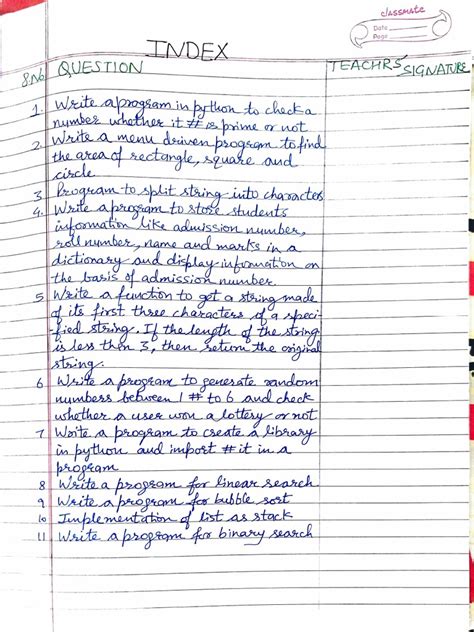 classmate
Date
Page
INDEX
S.No QUESTION TEACHRS' SIGNATURE
1. Write a program in python to check a
number whether it # is prime or not
2. Write a menu driven program to find
the area of rectangle, square and
circle
3 Program to split string into characters
4. Write a program to store students
information like admission number,
roll number, name and marks in a
dictionary and display information on
the basis of admission number.
5 Write a function to get a string made
of its first three characters of a speci-
fied string. If the length of the string
is less then 3, then return the original
string.
6 Write a program to generate random
numbers between 1 # to 6 and check
whether a user won a lottery or not
7 Write a program to create a library
in python and import # it in a
program
8 Write a program for linear search
9 Write a program for bubble sort
10 Implementation of list as stack
11 Write a program for binary search